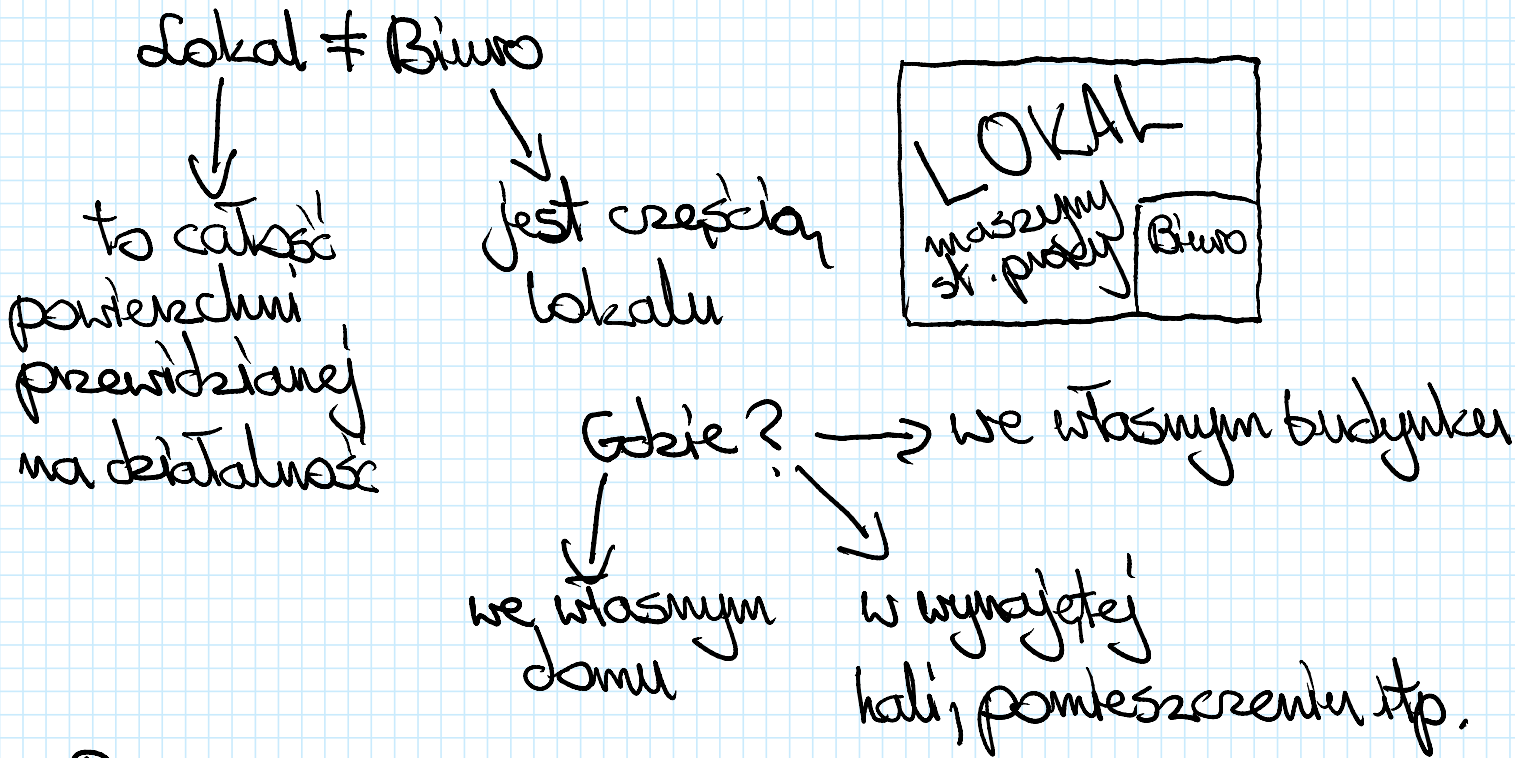 Lokal ≠ Biuro
to całość
powierzchni
przewidzianej
na działalność
jest częścią
lokalu
LOKAL
maszyny
sk.
Biuro
Gdzie? → we własnym budynku
we własnym
domu
w wynajętej
hali, pomieszczeniu itp.